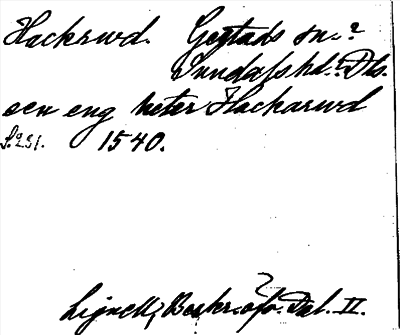 Hackrwd. Gestads sn.?
Sundals hd.? Dls.
oen eng heter Hackarwd
S. 231. 1540.
Lignell, Beskr. öfv. Dal. II.